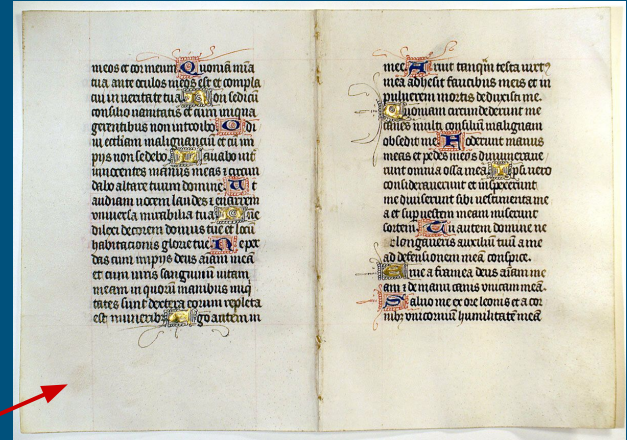 meos et cor meum Quoniã mĩa
tua ante oculos meos est et compla
cui in ueritate tua Non sedi cũ
consilio uanitatis et cum iniqua
gerentibus non introibo Odi
ui ecclіam malignanciũ et cũ im
piis non sedebo Lauabo int
innocentes manus meas ⁊ circun
dabo altare tuum domine Ut
audiam uocem laudes ⁊ enarrem
vniuersa mirabilia tua Dñe
dilexi decorem domus tue et locũ
habitacionis glorie tue Ne per
das cum impiis deus aĩam meã
et cum uiris sanguinũ uitam
meam in quorũ manibus iniq
tates sunt dextera eorum repleta
est muneribꝫ Ego autem in
mee Aruit tanqm̃ testa uirtꝰ
mea adhesit faucibus meis et in
puluerem mortis deduxisti me.
Quoniam circumdederunt me
canes multi consilium malignanciũ
obsedit me Foderunt manus
meas et pedes meos dinumeraue
runt omnia ossa mea Ipsi uero
considerauerunt et inspexerunt
me diuiserunt sibi uestimenta me
a et sup̱ uestem meam miserunt
sortem Tu autem domine ne
elongaueris auxiliũ tuũ a me
ad defensionem meã conspice.
Erue a framea deus aĩam me
am ⁊ de manu canis vnicam meã
Salua me ex ore leonis et a cor
nibꝫ vnicorniũ humilitatẽ meã